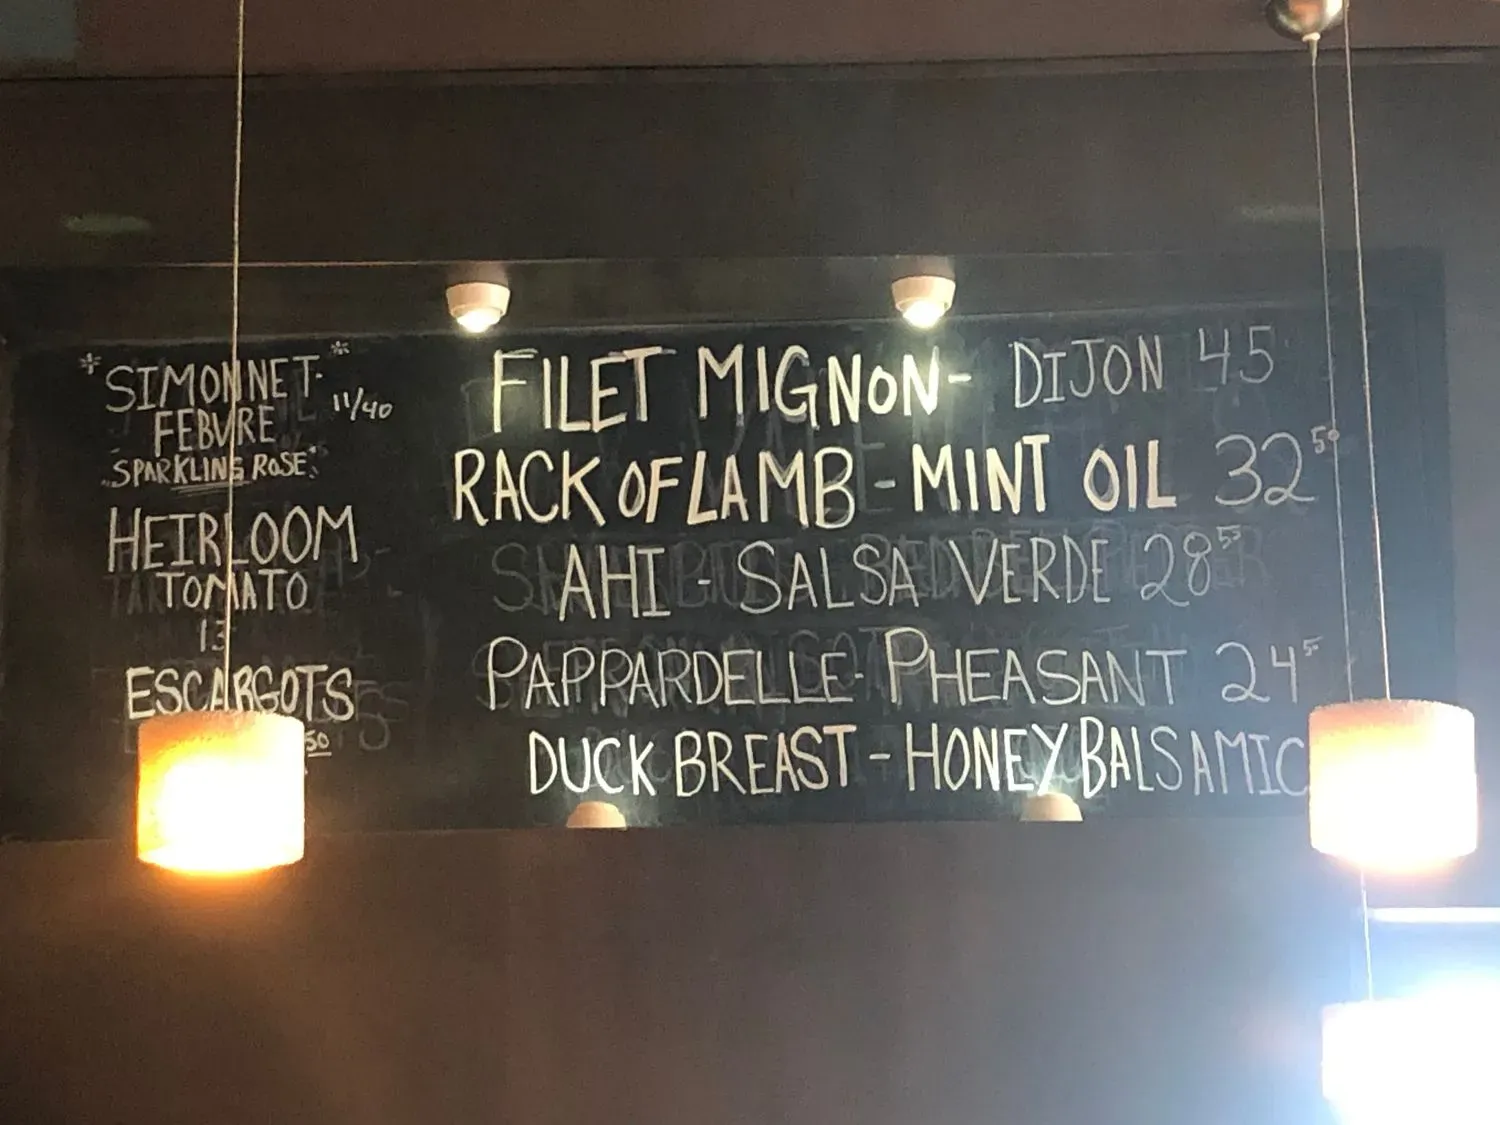 * SIMONNET- *
FEBVRE 11/40
"SPARKLING ROSE"
HEIRLOOM
TOMATO
13
ESCARGOTS
50
FILET MIGNON- DIJON 45
RACK OF LAMB - MINT OIL 32 50
AHI - SALSA VERDE 28
PAPPARDELLE- PHEASANT 24
DUCK BREAST - HONEY BALSAMIC